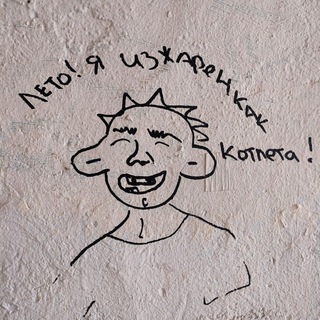 Лето! Я изжарен как
котлета!